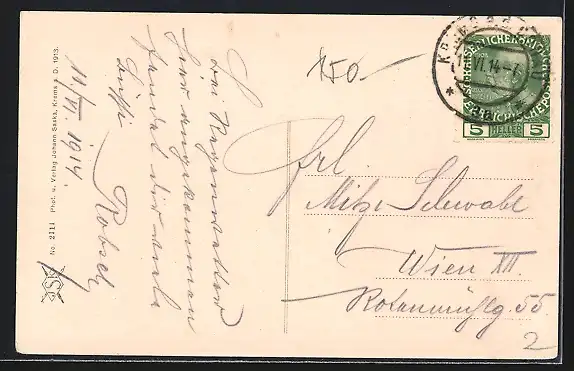 No. 2111 Phot. u. Verlag Johann Saska, Krems a. D. 1913.
11/VI. 1914.
Bei Regenwetter
hier angekommen
sendet dir viele
Küsse
150
KREMS
11.VI.14
KAISERLICHE KÖNIGLICHE
ÖSTERREICHISCHE POST
5 HELLER 5
Frl.
Mitzi Schwabl
Wien XII.
Rotenmühlg. 55.
2